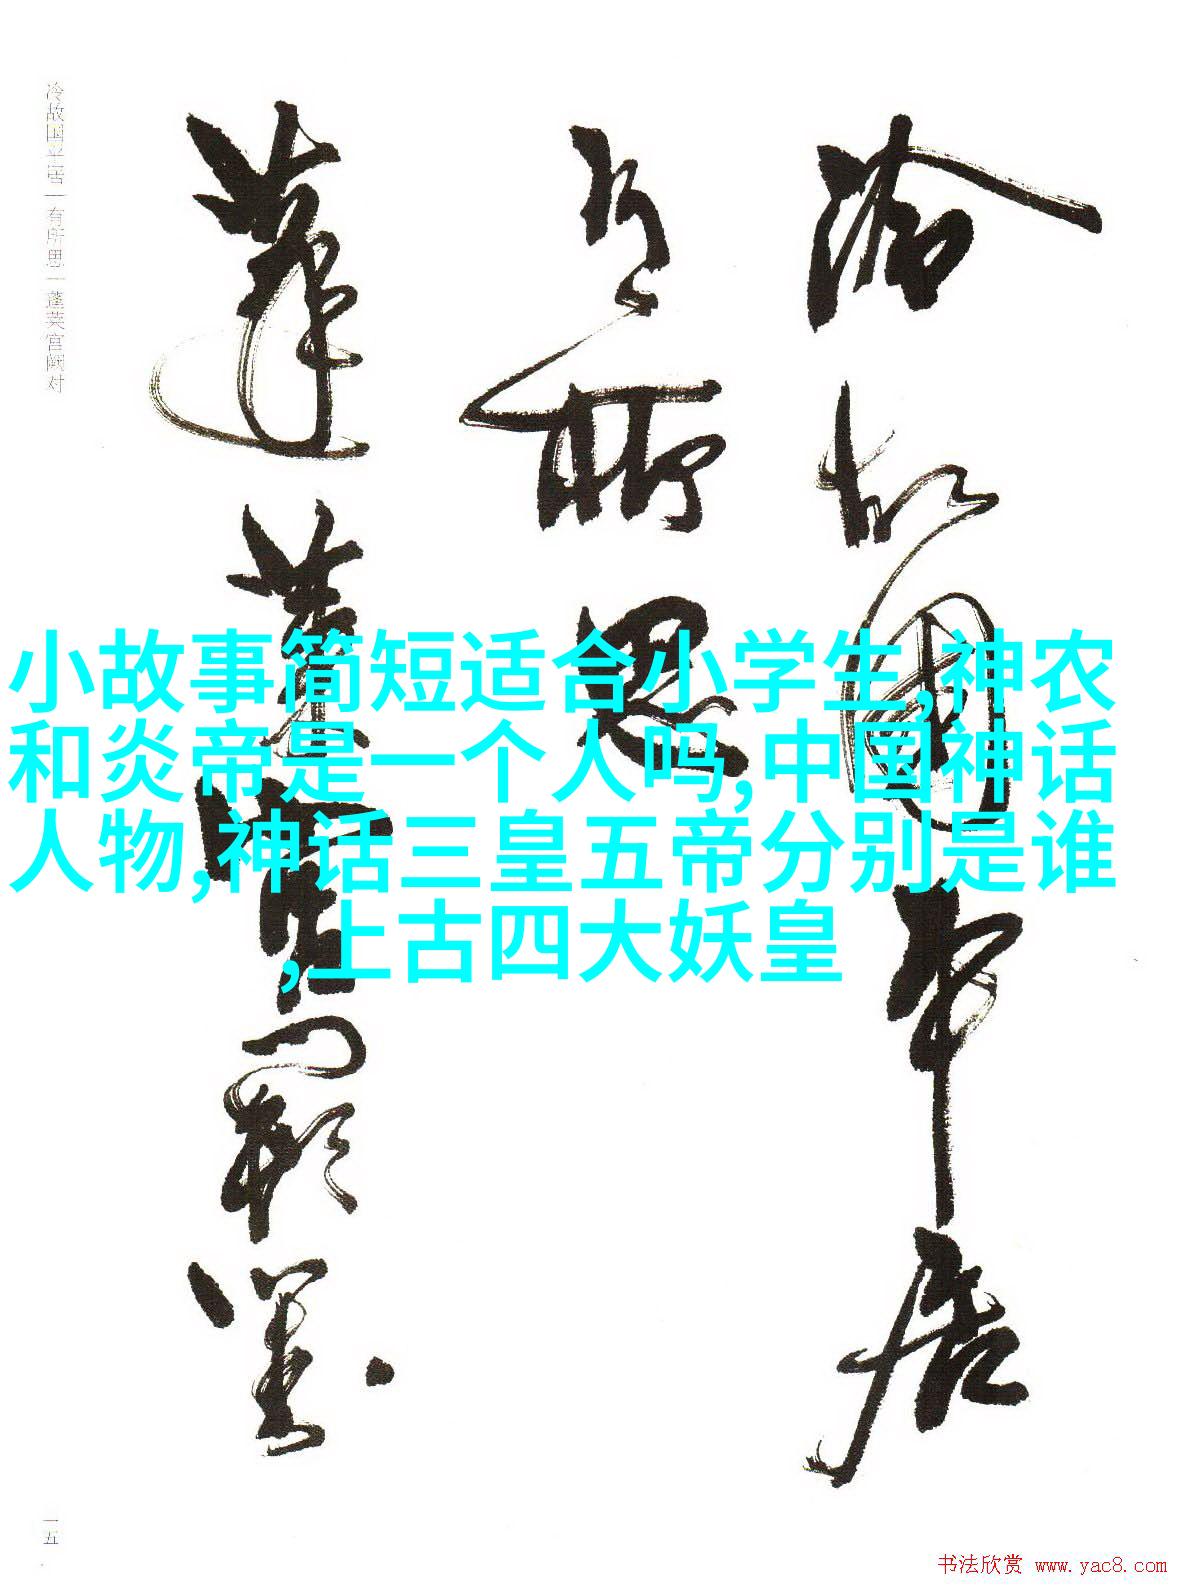 冷故国平居
有所思
蓬莱宫阙对
冷故国平居|有所思|蓬莱宫阙对
小故事简短适合小学生,神农
和炎帝是一个人吗,中国神话
人物,神话三皇五帝分别是谁
,上古四大妖皇
一五
书法欣赏 www.yac8.com